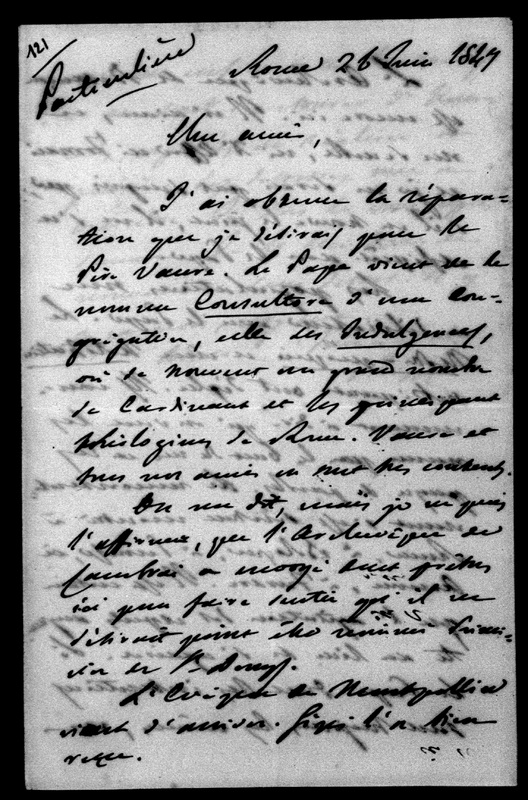 121
Particulière
Rome 26 Juin 1847
Mon ami,
J'ai obtenu la répara-
tion que je désirais pour le
Père Vaure. Le Pape vient de le
nommer Consulteur d'une Con-
grégation, celle des Indulgences,
où se trouvent un grand nombre
de Cardinaux et les principaux
théologiens de Rome. Vaure et
tous nos amis en sont très contents.
On me dit, mais je ne puis
l'affirmer, que l'Archevêque de
Cambrai a envoyé un prêtre
ici pour faire savoir qu'il ne
désirait point être nommé Primi-
cier de St Denys.
L'Evêque de Montpellier
vient d'arriver. l'a bien
reçu.